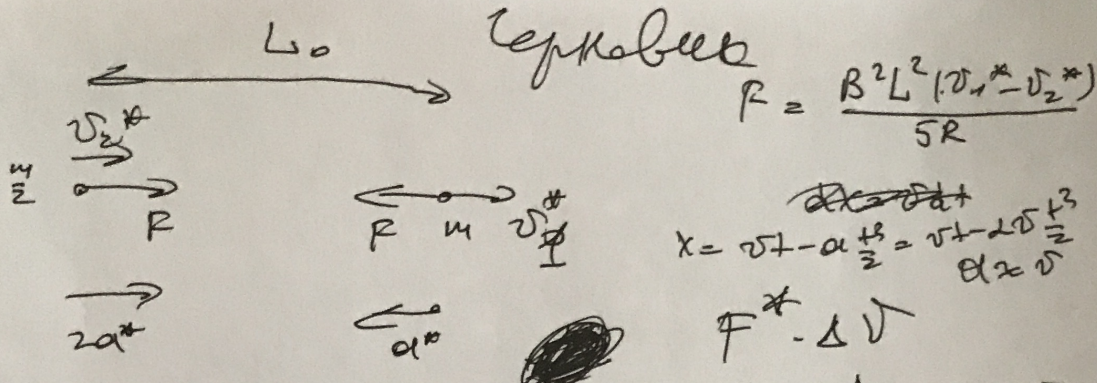 L₀ Черновик
F = B²L²(v₁* - v₂*) / 5R
v₂*
m/2
F F m v₁*
x = vt - a t³/2 = vt - αv t³/2
a ~ v
2a* a* F* - Δv